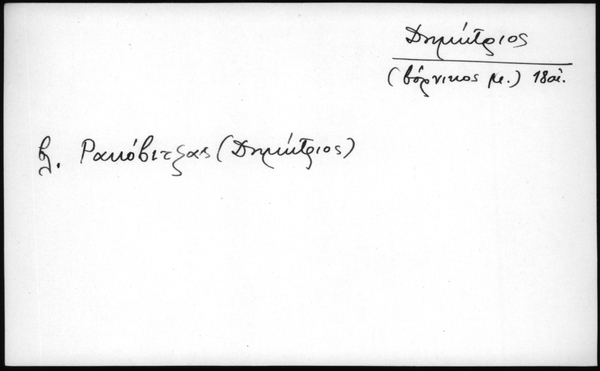 Δημήτριος
(βόρνικος με.) 18 αἰ.
βλ. Ρακόβιτζας (Δημήτριος)